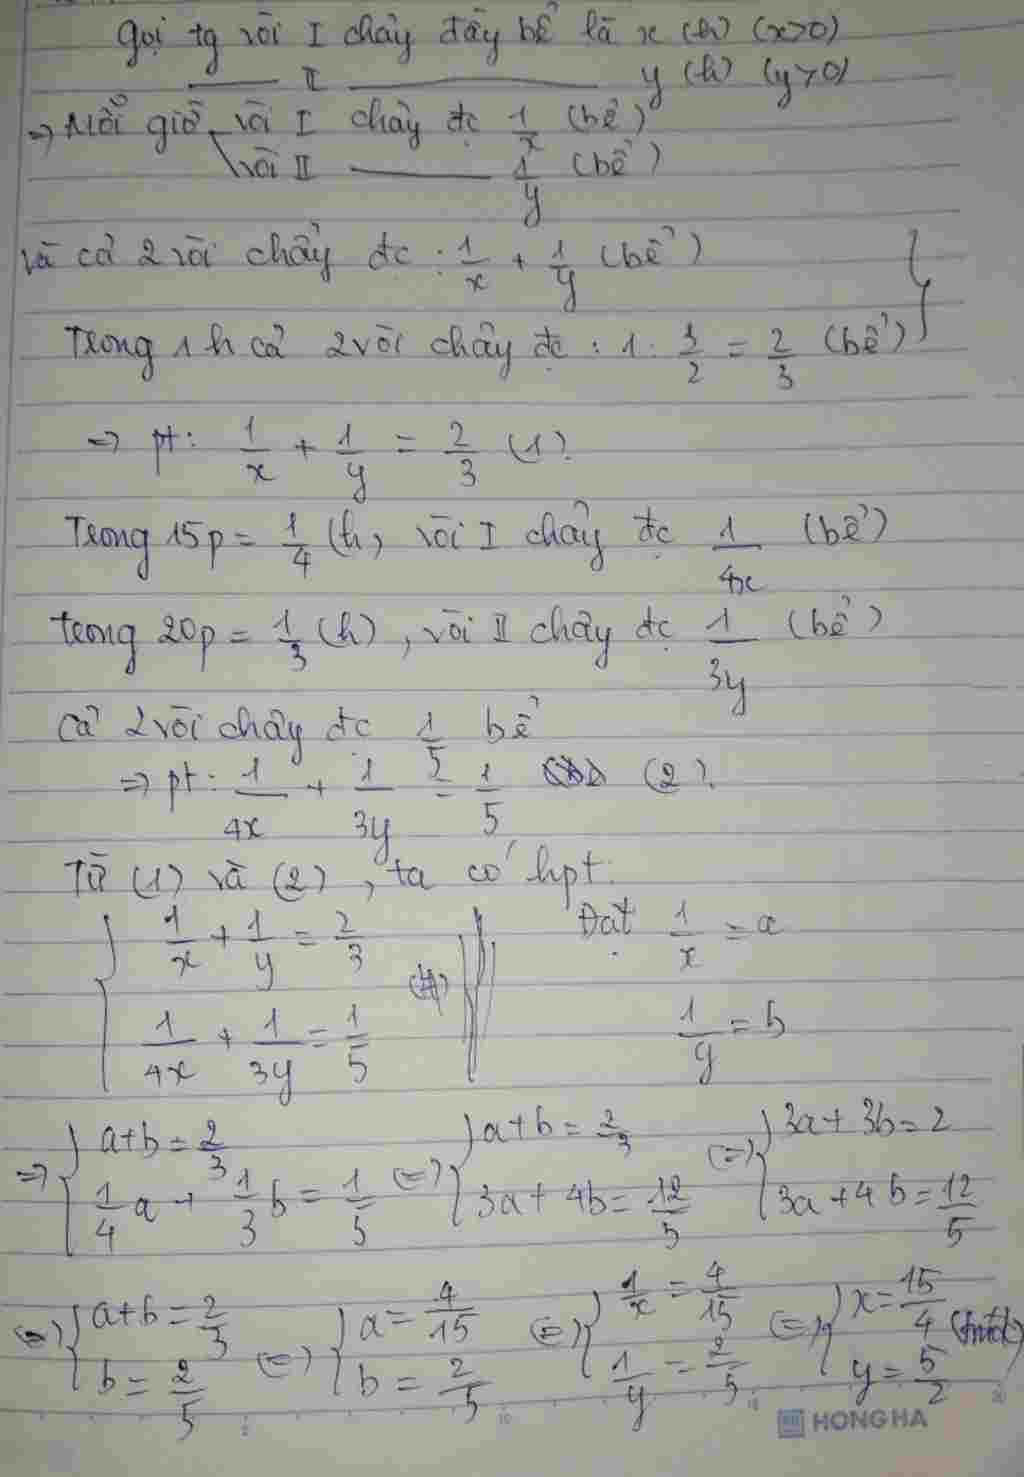 Gọi tg vòi I chảy đầy bể là x (h) (x>0)
—— II ———— y (h) (y>0)
=> Mỗi giờ vòi I chảy đc 1/x (bể)
vòi II —— 1/y (bể)
và cả 2 vòi chảy đc : 1/x + 1/y (bể)
Trong 1h cả 2 vòi chảy đc : 1 : 3/2 = 2/3 (bể)
=> pt: 1/x + 1/y = 2/3 (1).
Trong 15p = 1/4 (h), vòi I chảy đc 1/4x (bể)
trong 20p = 1/3 (h), vòi II chảy đc 1/3y (bể)
Cả 2 vòi chảy đc 1/5 bể
=> pt: 1/4x + 1/3y = 1/5 (2).
Từ (1) và (2), ta có hpt:
{ 1/x + 1/y = 2/3 Đặt 1/x = a
{ 1/4x + 1/3y = 1/5 1/y = b
=> { a+b = 2/3 (=) { a+b = 2/3 (=) { 3a + 3b = 2
{ 1/4 a + 1/3 b = 1/5 { 3a + 4b = 12/5 { 3a + 4b = 12/5
(=) { a+b = 2/3 (=) { a = 4/15 (=) { 1/x = 4/15 (=) { x = 15/4
{ b = 2/5 { b = 2/5 { 1/y = 2/5 { y = 5/2
HONG HA